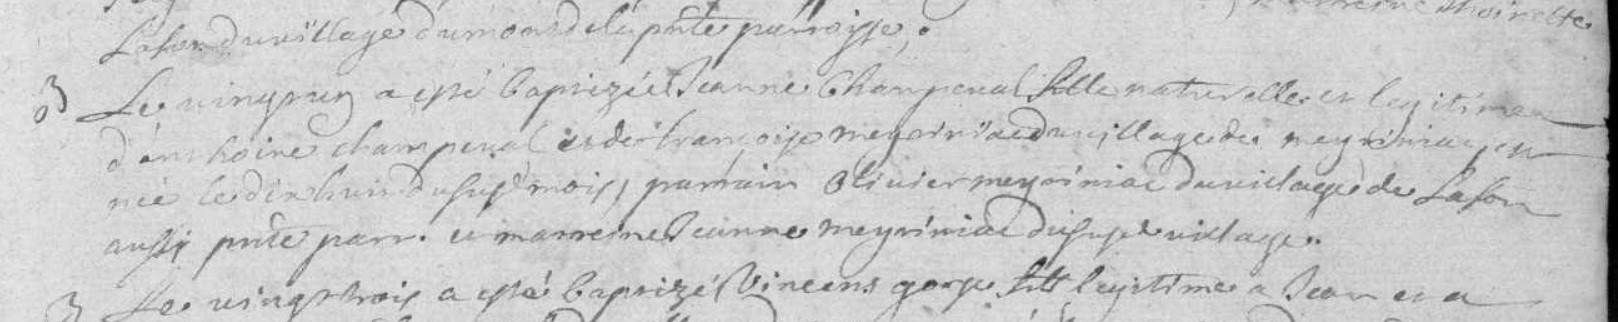 marreine Thoinette
Lafon du village du mons de la pnte parroisse.
3 Le vingt un a esté baptizée Jeanne Champeval fille naturelle et legitime
d'anthoine champeval et de françoise meyriniac du village de meyriniac, est
née le dix huit du susd mois, parrain Olivier meyriniac du village de Lafon
aussy pnte parr. et marreine Jeanne meyriniac du susd village.
3 Le vingt trois a esté baptizé Vincens gorse fill legitime a Jean et a